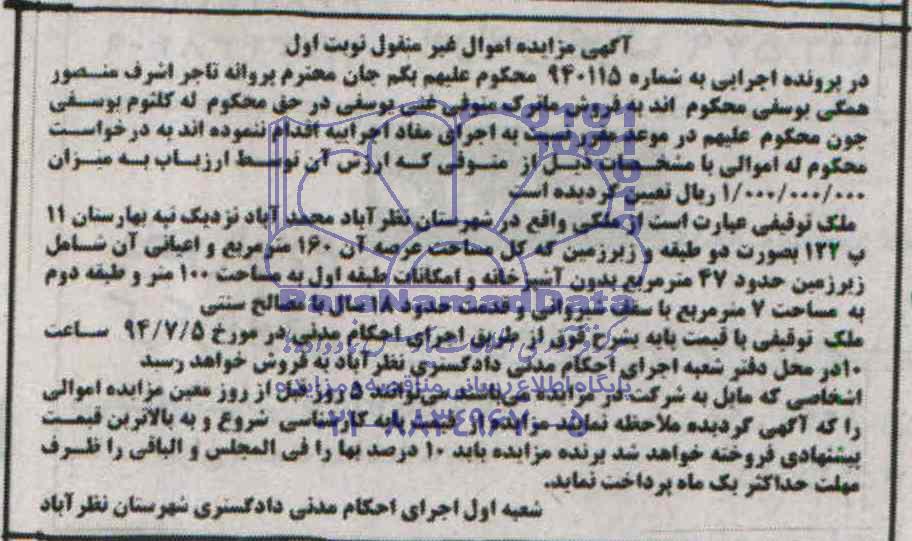 آگهی مزایده اموال غیر منقول نوبت اول
در پرونده اجرایی به شماره ۹۴۰۱۱۵ محکوم علیهم بگم جان محترم پروانه تاجر اشرف منصور
همگی یوسفی محکوم اند به فروش ماترک متوفی غنی یوسفی در حق محکوم له کلثوم یوسفی
چون محکوم علیهم در موعد مقرر نسبت به اجرای مفاد اجراییه اقدام ننموده اند به درخواست
محکوم له اموالی با مشخصات ذیل از متوفی که ارزش آن توسط ارزیاب به میزان
۱/۰۰۰/۰۰۰/۰۰۰ ریال تعیین گردیده است
ملک توقیفی عبارت است از ملکی واقع در شهرستان نظر آباد محمد آباد نزدیک تپه بهارستان ۱۱
پ ۱۲۲ بصورت دو طبقه و زیرزمین که کل مساحت عرصه آن ۱۶۰ مترمربع و اعیانی آن شامل
زیرزمین حدود ۴۷ مترمربع بدون آشپزخانه و امکانات طبقه اول به مساحت ۱۰۰ متر و طبقه دوم
به مساحت ۷ مترمربع با سقف شیروانی و قدمت حدود ۱۸ سال با مصالح سنتی
ملک توقیفی با قیمت پایه بشرح فوق از طریق اجرای احکام مدنی در مورخ ۹۴/۷/۵ ساعت
۱۰ در محل دفتر شعبه اجرای احکام مدنی دادگستری نظر آباد به فروش خواهد رسید
اشخاصی که مایل به شرکت در مزایده می‌باشند می‌توانند ۵ روز قبل از روز معین مزایده اموالی
را که آگهی گردیده ملاحظه نمایند مزایده از قیمت پایه کارشناسی شروع و به بالاترین قیمت
پیشنهادی فروخته خواهد شد برنده مزایده باید ۱۰ درصد بها را فی المجلس و الباقی را ظرف
مهلت حداکثر یک ماه پرداخت نماید.
شعبه اول اجرای احکام مدنی دادگستری شهرستان نظر آباد
ParsNamadData
پایگاه اطلاع رسانی مناقصه و مزایده
۰۲۱-۸۸۳۴۹۶۷۰-۵